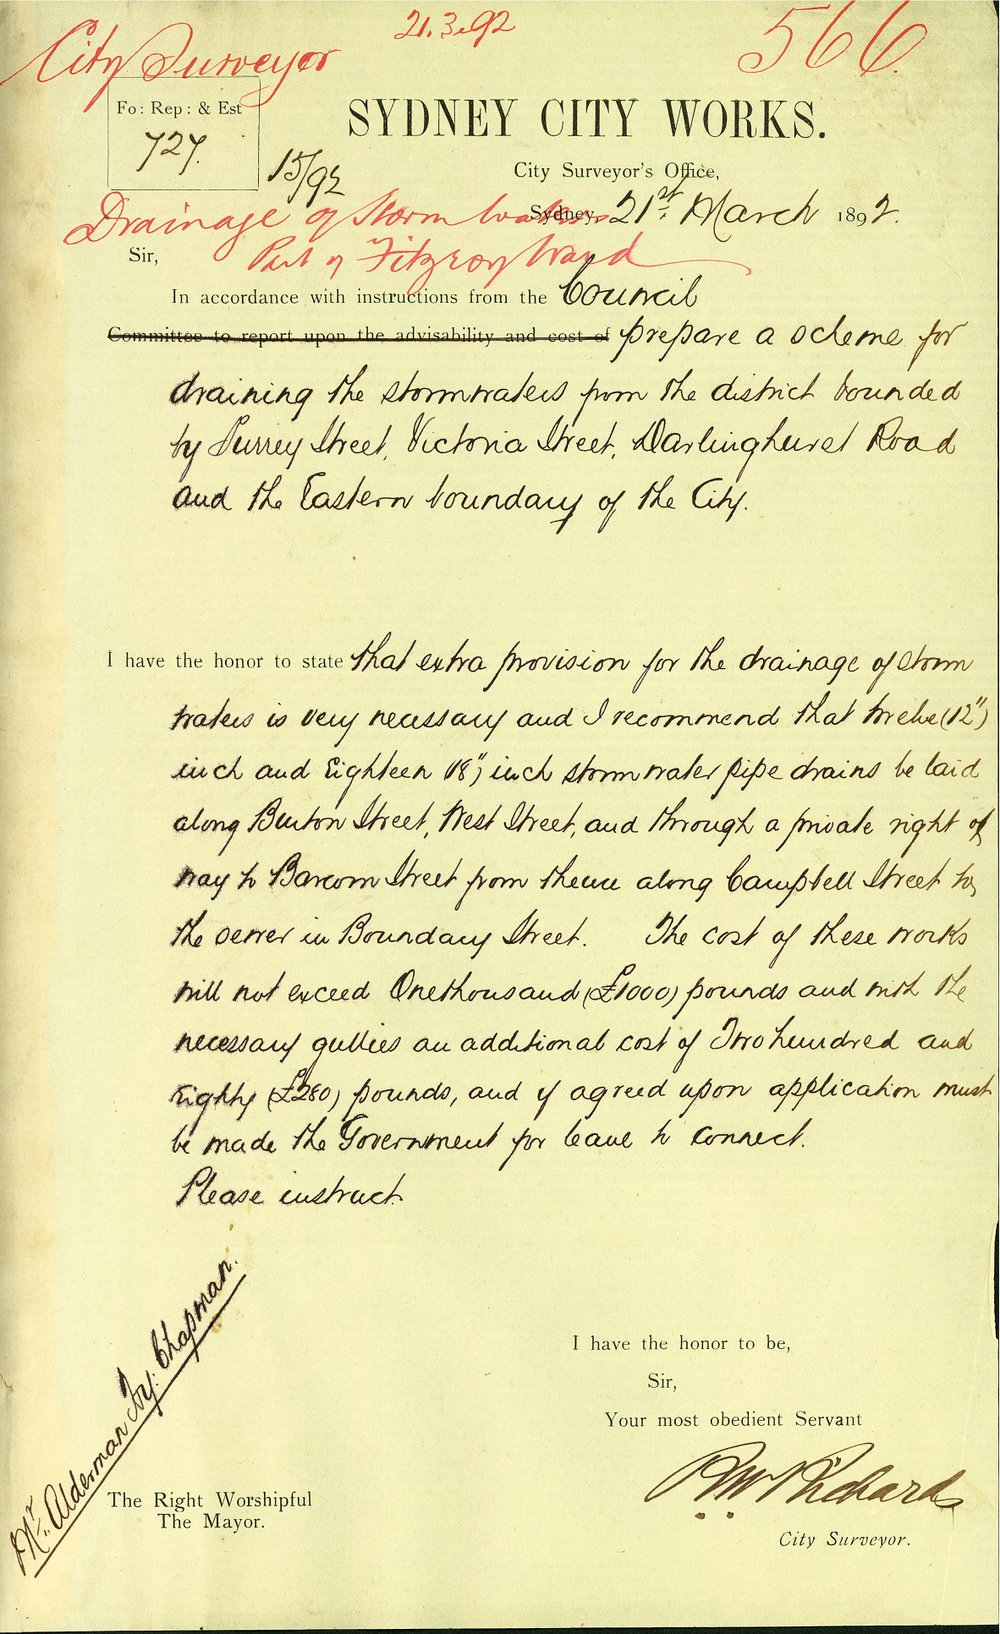 21.3.92
566.
City Surveyor
Fo: Rep: & Est
727.
15/92
SYDNEY CITY WORKS.
City Surveyor's Office,
Drainage of Storm Waters
Sydney, 21st March 1892.
Part of Fitzroy Ward
Sir,
In accordance with instructions from the Council
Committee to report upon the advisability and cost of prepare a scheme for
draining the stormwaters from the district bounded
by Surrey Street, Victoria Street, Darlinghurst Road
and the Eastern boundary of the City.
I have the honor to state that extra provision for the drainage of storm
waters is very necessary and I recommend that twelve (12")
inch and Eighteen 18") inch stormwater pipe drains be laid
along Burton Street, West Street, and through a private right of
way to Barcom Street from thence along Campbell Street to
the sewer in Boundary Street. The cost of these works
will not exceed One thousand (£1000) pounds and with the
necessary gullies an additional cost of Two hundred and
Eighty (£280) pounds, and if agreed upon application must
be made the Government for leave to connect.
Please instruct.
I have the honor to be,
Sir,
Your most obedient Servant
Richards
City Surveyor.
The Right Worshipful
The Mayor.
Mr. Alderman Chapman.